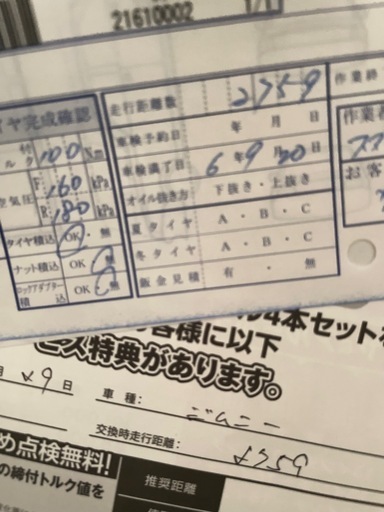 21610002 1/1
タイヤ完成確認
走行距離数 2759
作業終
車検予約日 年 月 日
100 Nm
車検満了日 6年9月30日
空気圧 F: 160 kPa
R: 180 kPa
オイル抜き方 下抜き・上抜き
タイヤ積込 OK・無
夏タイヤ A・B・C
ナット積込 OK 無
冬タイヤ A・B・C
ロックアダプター積込 OK 無
鈑金見積 有・無
作業
お客
4本セット
客様に以下
特典があります。
月 29日
車種: ジムニー
交換時走行距離: 2759
め点検無料!
の締付トルク値を
推奨距離